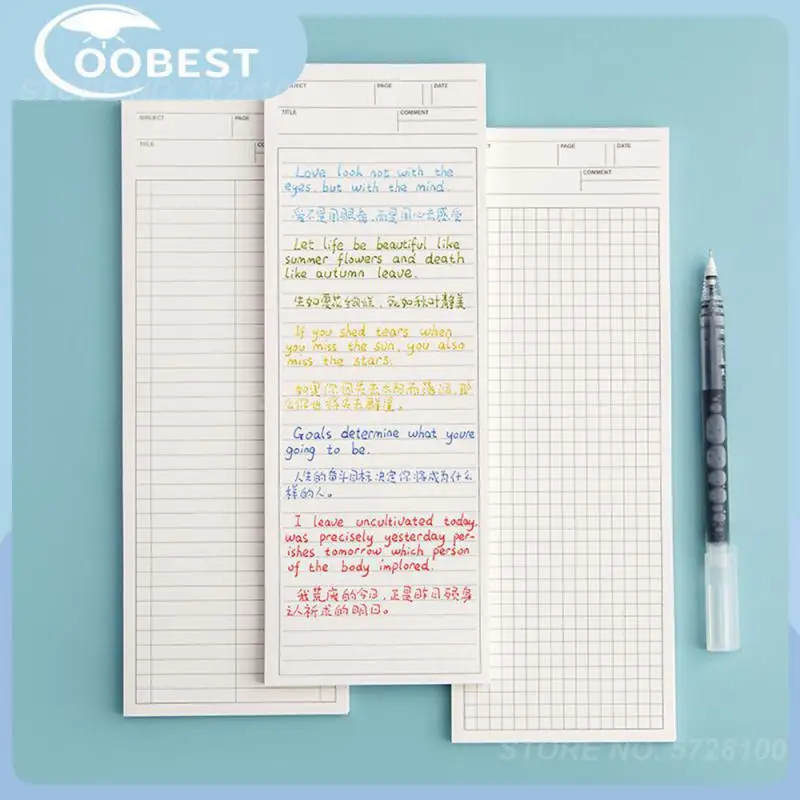 COOBEST
STORE NO. 5726100
SUBJECT PAGE
TITLE
SUBJECT PAGE DATE
TITLE COMMENT
Love look not with the
eyes, but with the mind.
爱不是用眼看,而是用心去感受
Let life be beautiful like
summer flowers and death
like autumn leave.
生如夏花绚烂,死如秋叶静美
If you shed tears when
you miss the sun, you also
miss the stars.
如果你因失去太阳而落泪,那
么你也将失去群星。
Goals determine what you're
going to be.
人生的奋斗目标决定你将成为什么
样的人。
I leave uncultivated today,
was precisely yesterday per-
ishes tomorrow which person
of the body implored.
我荒废的今日,正是昨日殒身
之人祈求的明日。
PAGE DATE
COMMENT
STORE NO. 5726100